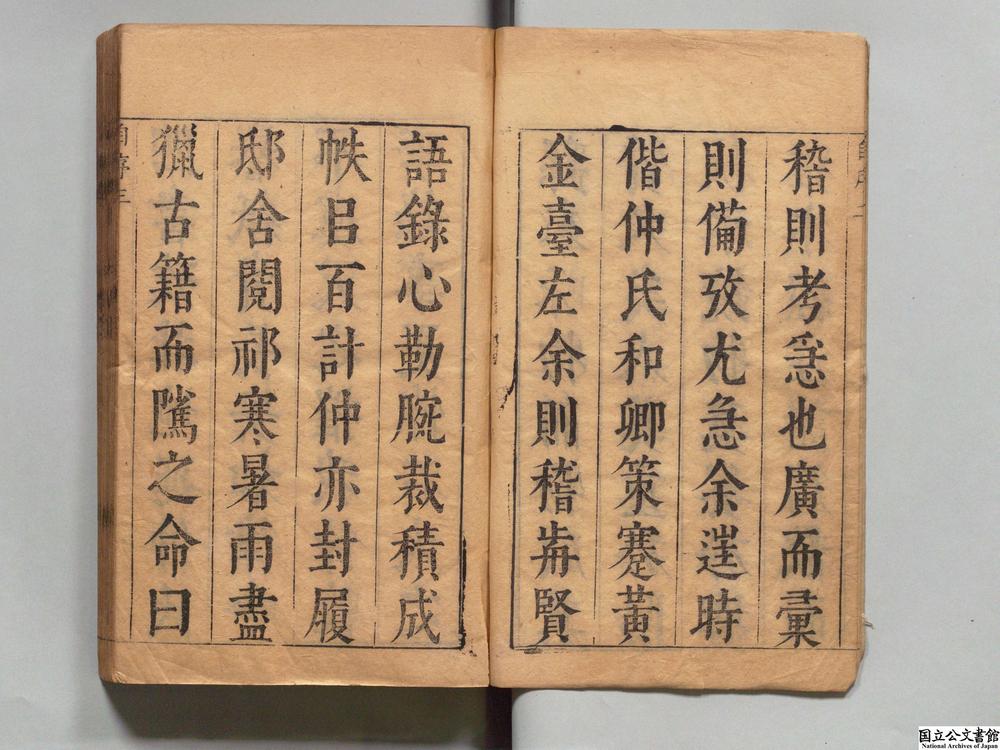 稽則考急也廣而彙
則備攷尤急余遑時
偕仲氏和卿策蹇黃
金臺左余則稽歬賢
語錄心勒腕裁積成
帙㠯百計仲亦封履
邸舍閱祁寒暑雨盡
獵古籍而隲之命曰
自序三
国立公文書館
National Archives of Japan